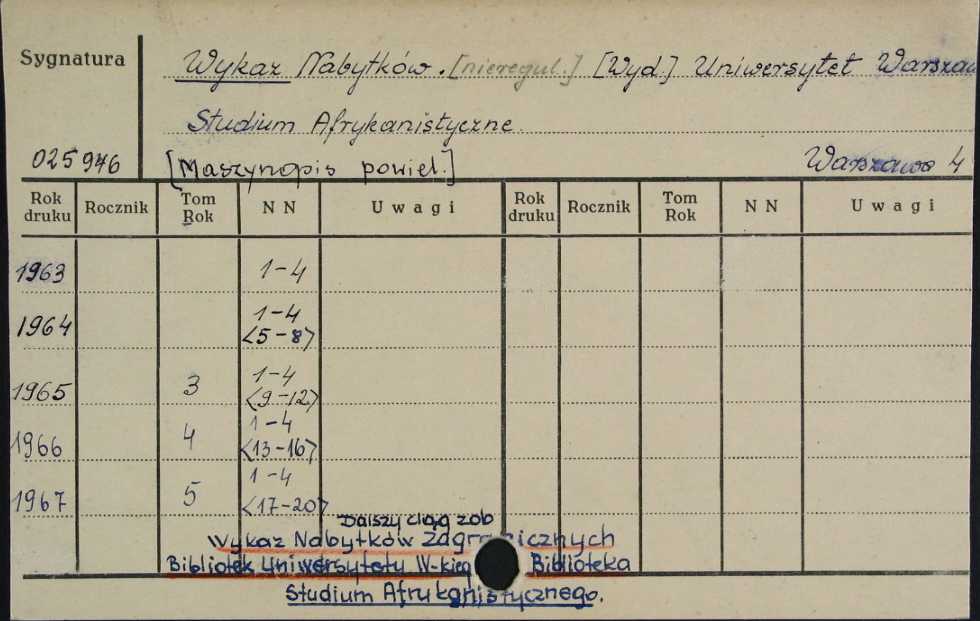 Sygnatura
Wykaz Nabytków. [nieregul.] [Wyd.] Uniwersytet Warszaw
Studium Afrykanistyczne.
025946 [Maszynopis powiel.] Warszawa 4
Rok druku Rocznik Tom Rok NN Uwagi Rok druku Rocznik Tom Rok NN Uwagi
1963 1-4
1964 1-4
<5-8>
1965 3 1-4
<9-12>
1966 4 1-4
<13-16>
1967 5 1-4
<17-20>
Dalszy ciąg zob
Wykaz Nabytków Zagranicznych
Bibliotek Uniwersytetu W-kieg Biblioteka
Studium Afrykanistycznego.